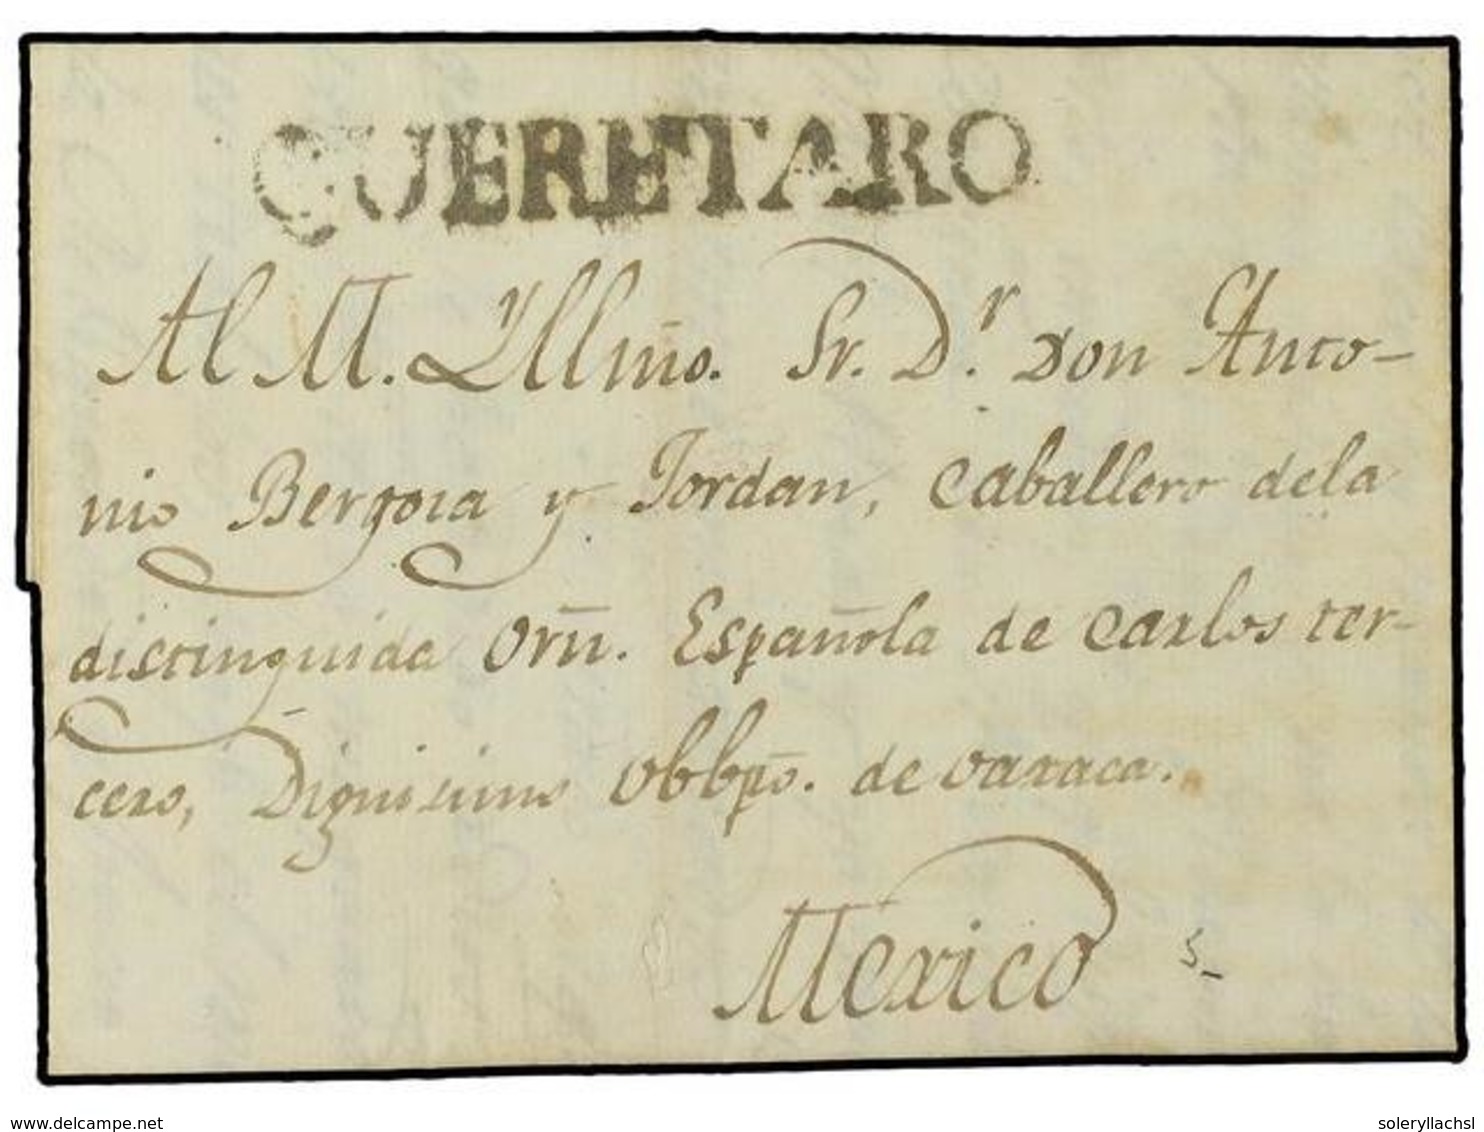 QUERETARO
Al M. Yllm̃o. Sr. D.r Don Anto-
nio Bergosa y Jordan, Caballero dela
distinguida Orñ. Española de Carlos ter-
cero, Dignisimo Obbp̃o. de Oaxaca.
Mexico
delcampe.net
soleryllachsl